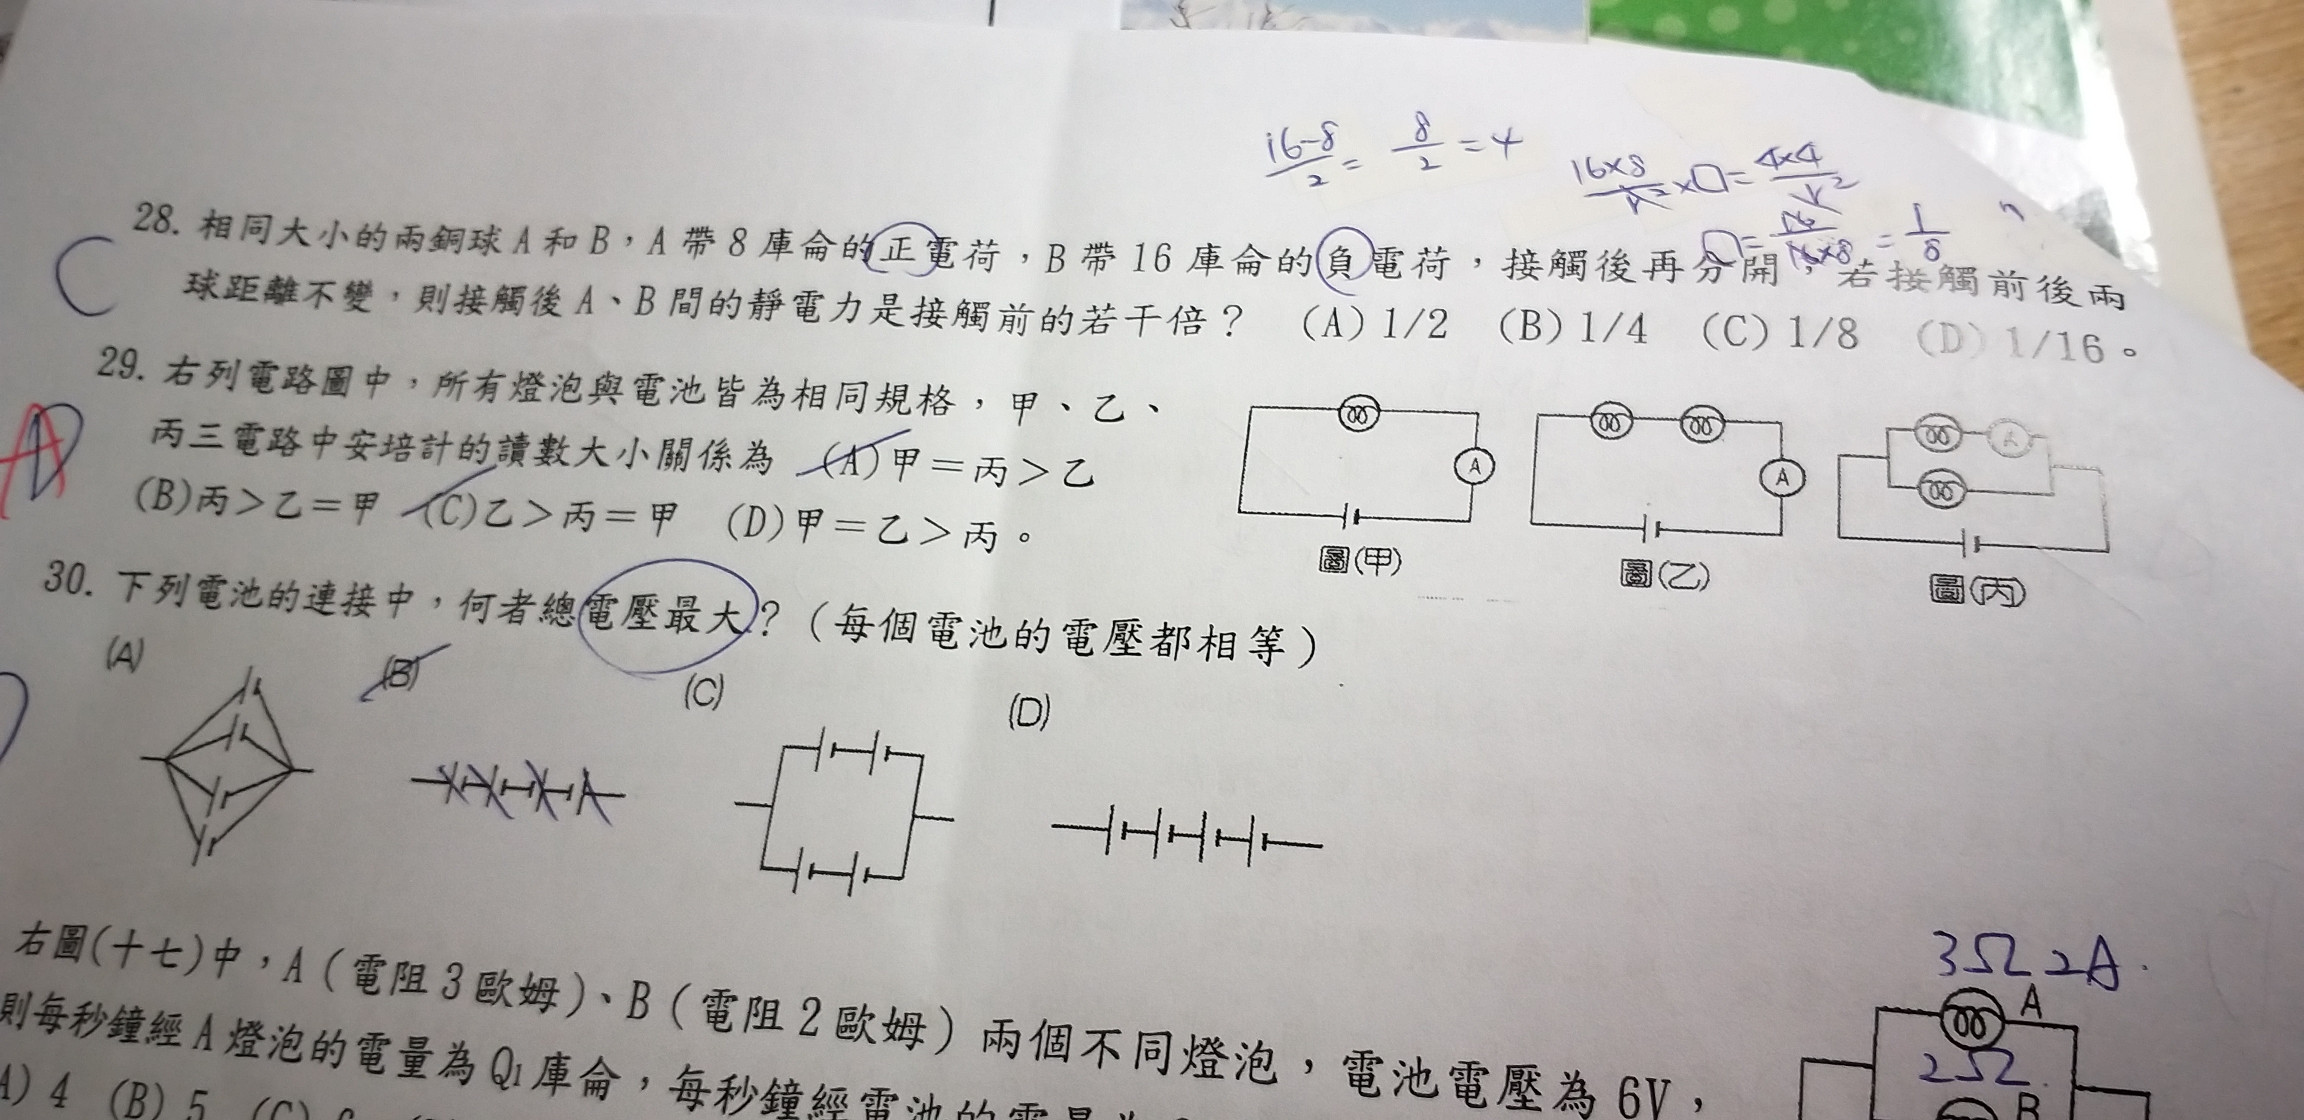 16-8/2 = 8/2 = 4
16×8/r² ×□ = 4×4/r²
□ = 16/16×8 = 1/8
C
28. 相同大小的兩銅球 A 和 B，A 帶 8 庫侖的正電荷，B 帶 16 庫侖的負電荷，接觸後再分開，若接觸前後兩
球距離不變，則接觸後 A、B 間的靜電力是接觸前的若干倍？ (A) 1/2 (B) 1/4 (C) 1/8 (D) 1/16。
29. 右列電路圖中，所有燈泡與電池皆為相同規格，甲、乙、
丙三電路中安培計的讀數大小關係為 (A)甲＝丙＞乙
(B)丙＞乙＝甲 (C)乙＞丙＝甲 (D)甲＝乙＞丙。
A
A
A
A
圖(甲)
圖(乙)
圖(丙)
30. 下列電池的連接中，何者總電壓最大？（每個電池的電壓都相等）
(A)
(B)
(C)
(D)
右圖(十七)中，A（電阻 3 歐姆）、B（電阻 2 歐姆）兩個不同燈泡，電池電壓為 6V，
則每秒鐘經 A 燈泡的電量為 Q1 庫侖，每秒鐘經電池的電量為
A) 4 (B) 5 (C)
3Ω 2A
A
2Ω
B